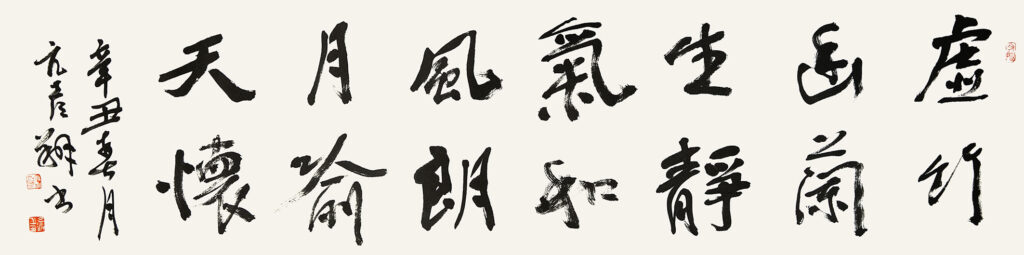 虛竹
幽蘭
生靜
氣和
風朗
月喻
天懷
辛丑春月
亢彦翔书